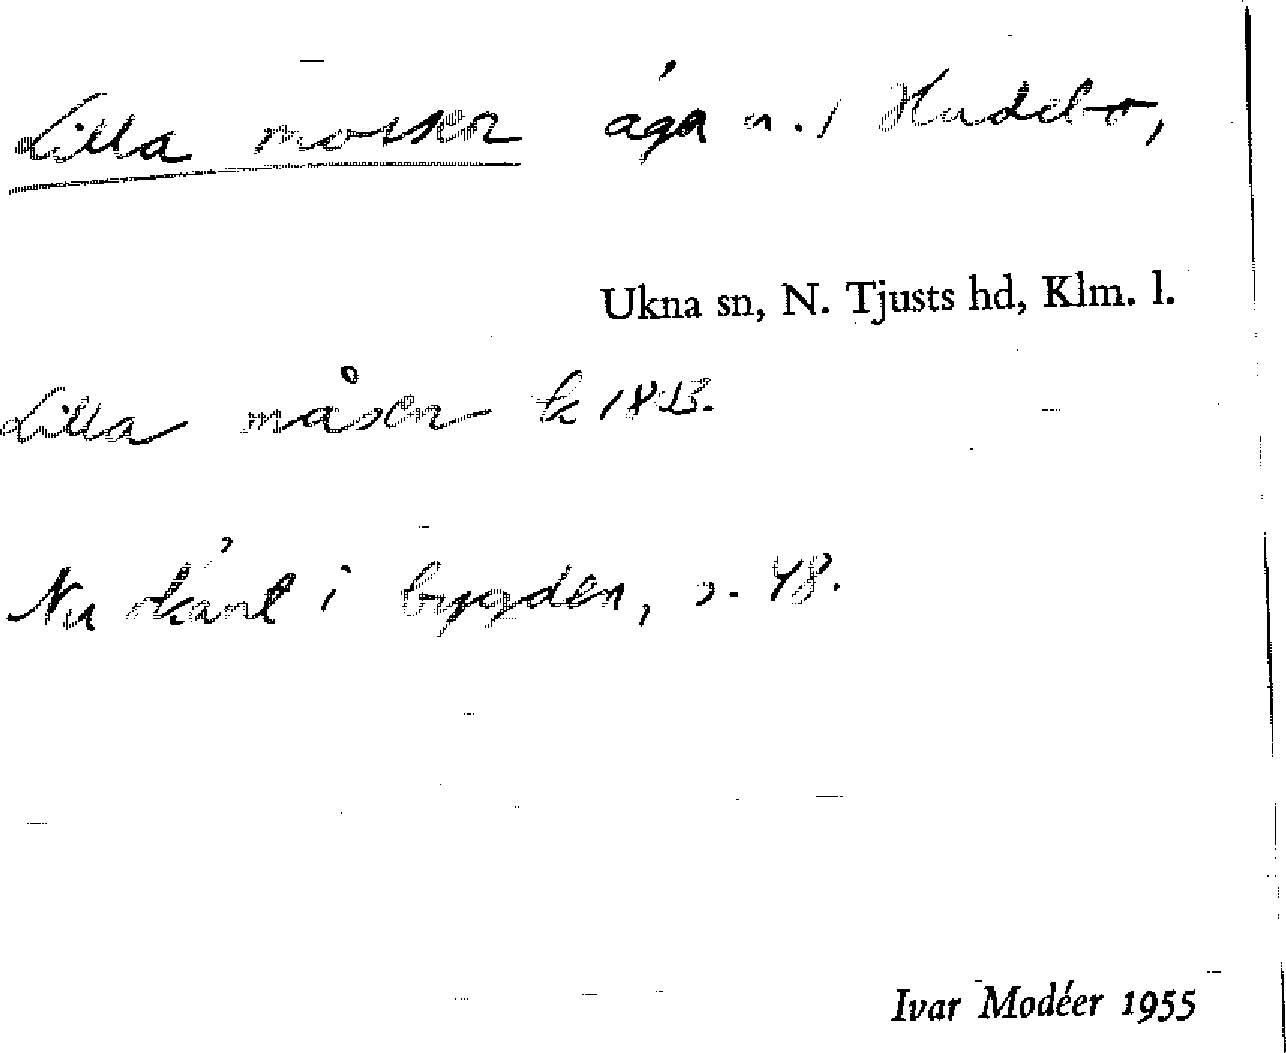 Lilla mossen äga n. i Hudebo,
Ukna sn, N. Tjusts hd, Klm. l.
Lilla måsen k 1813.
Nu okänt i bygden, s. 48.
Ivar Modéer 1955